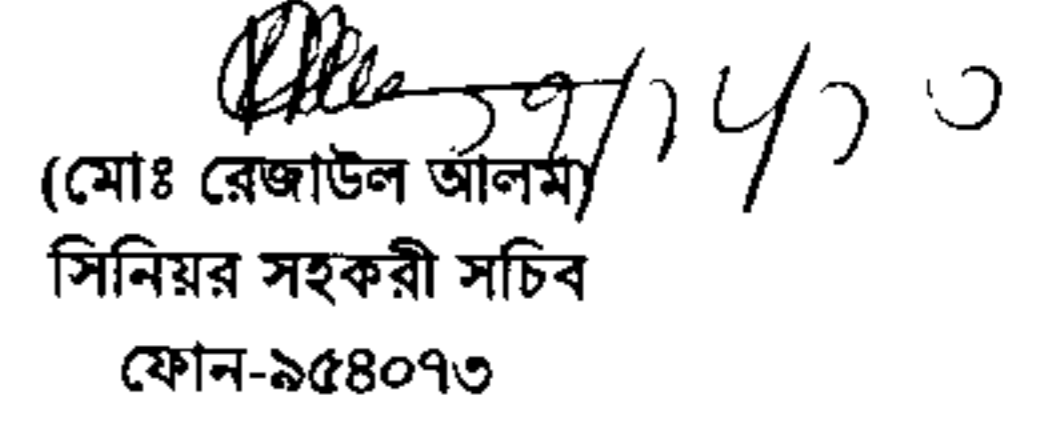 (মোঃ রেজাউল আলম)
সিনিয়র সহকরী সচিব
ফোন-৯৫৪০৭৩